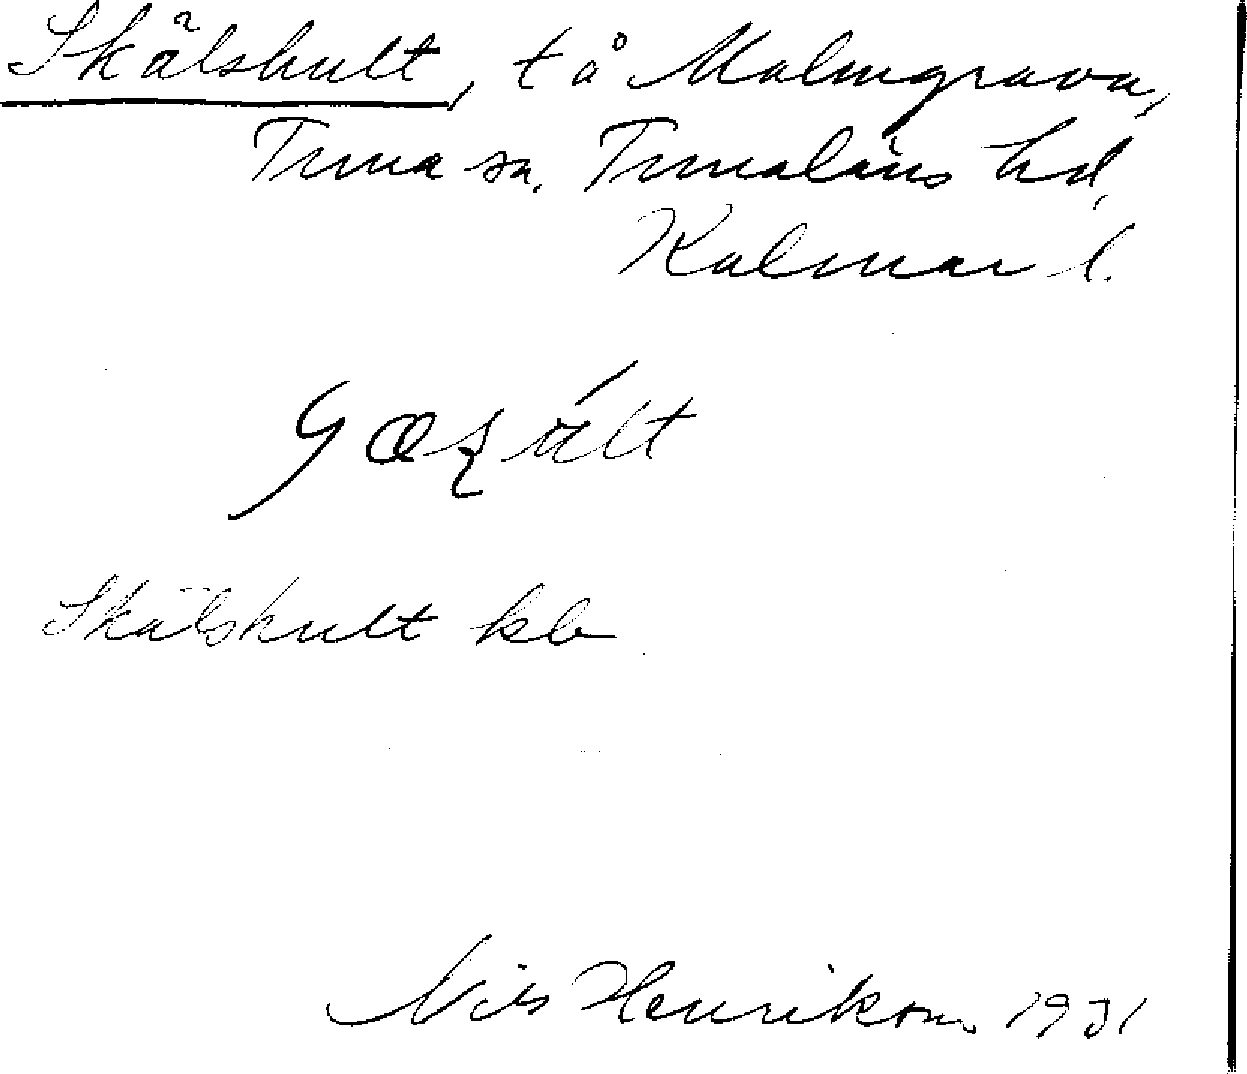 Skälshult, tå Malmgrava,
Tuna sn. Tunaläns hd,
Kalmar l.
Skälshult kb
Nils Henrikson 1931